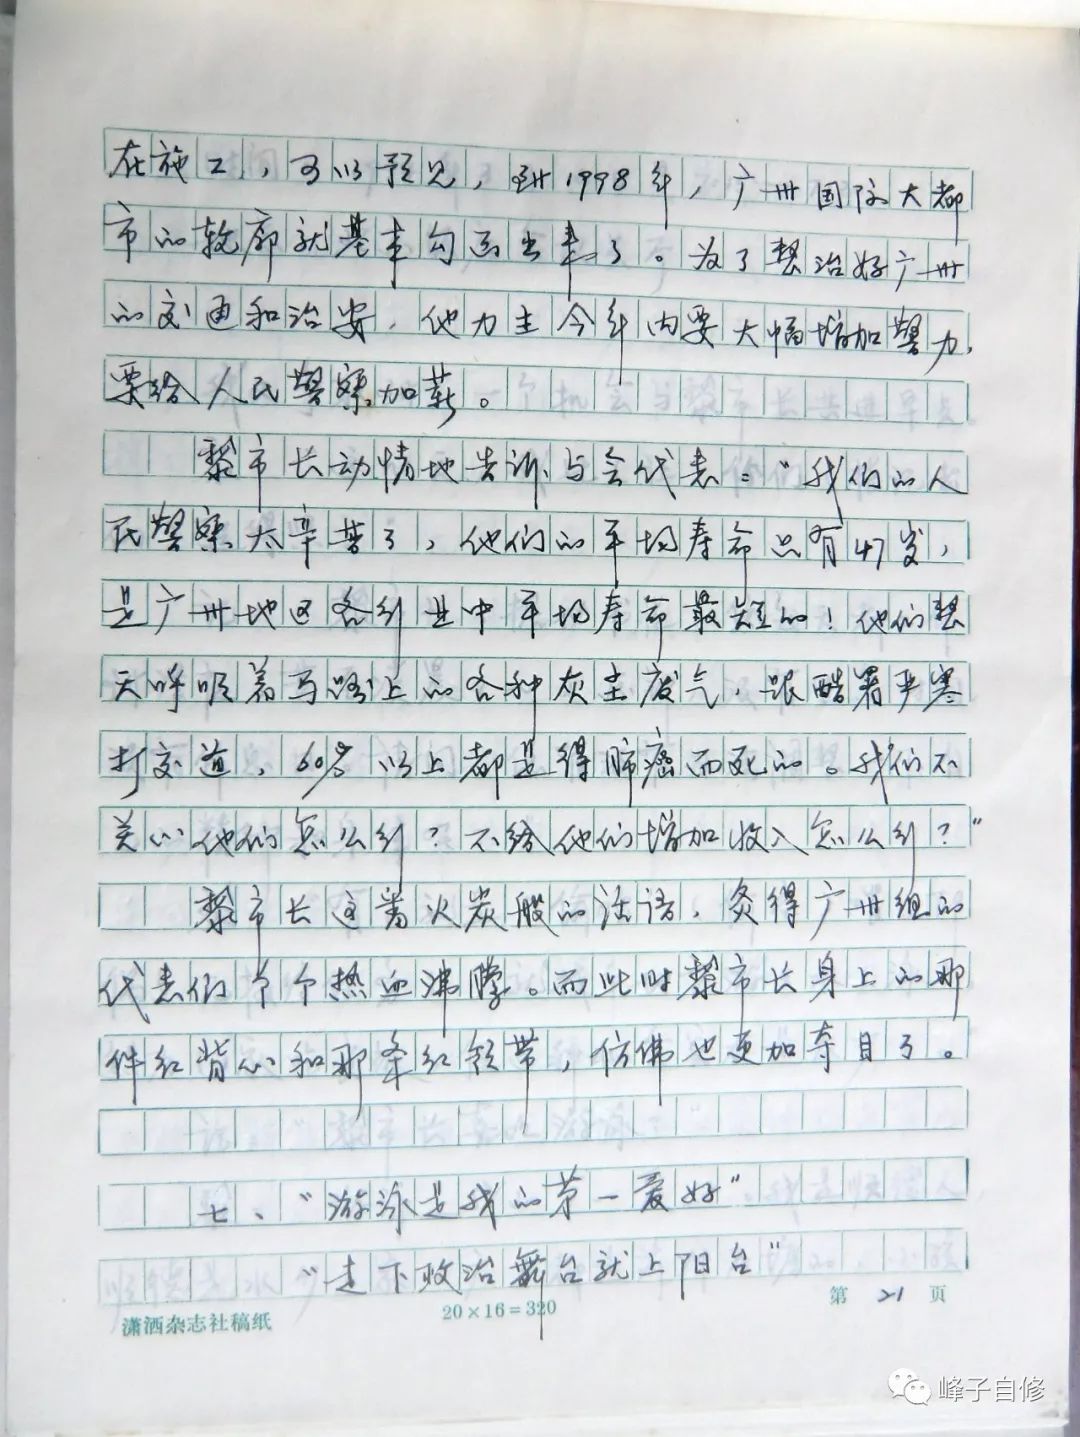 在施工，可以预见，到1998年，广州国际大都
市的轮廓就基本勾画出来了。为了整治好广州
的交通和治安，他力主今年内要大幅增加警力，
要给人民警察加薪。
黎市长动情地告诉与会代表："我们的人
民警察太辛苦了，他们的平均寿命只有47岁，
是广州地区各行业中平均寿命最短的！他们整
天呼吸着马路上的各种灰尘废气，跟酷暑严寒
打交道，60%以上都是得肺癌而死的。我们不
关心他们怎么行？不给他们增加收入怎么行？"
黎市长这番火炭般的话语，炙得广州组的
代表们个个热血沸腾。而此时黎市长身上的那
件红背心和那条红领带，仿佛也更加夺目了。
七、"游泳是我的第一爱好"
"走下政治舞台就上阳台"
潇洒杂志社稿纸 20×16=320 第 21 页
峰子自修